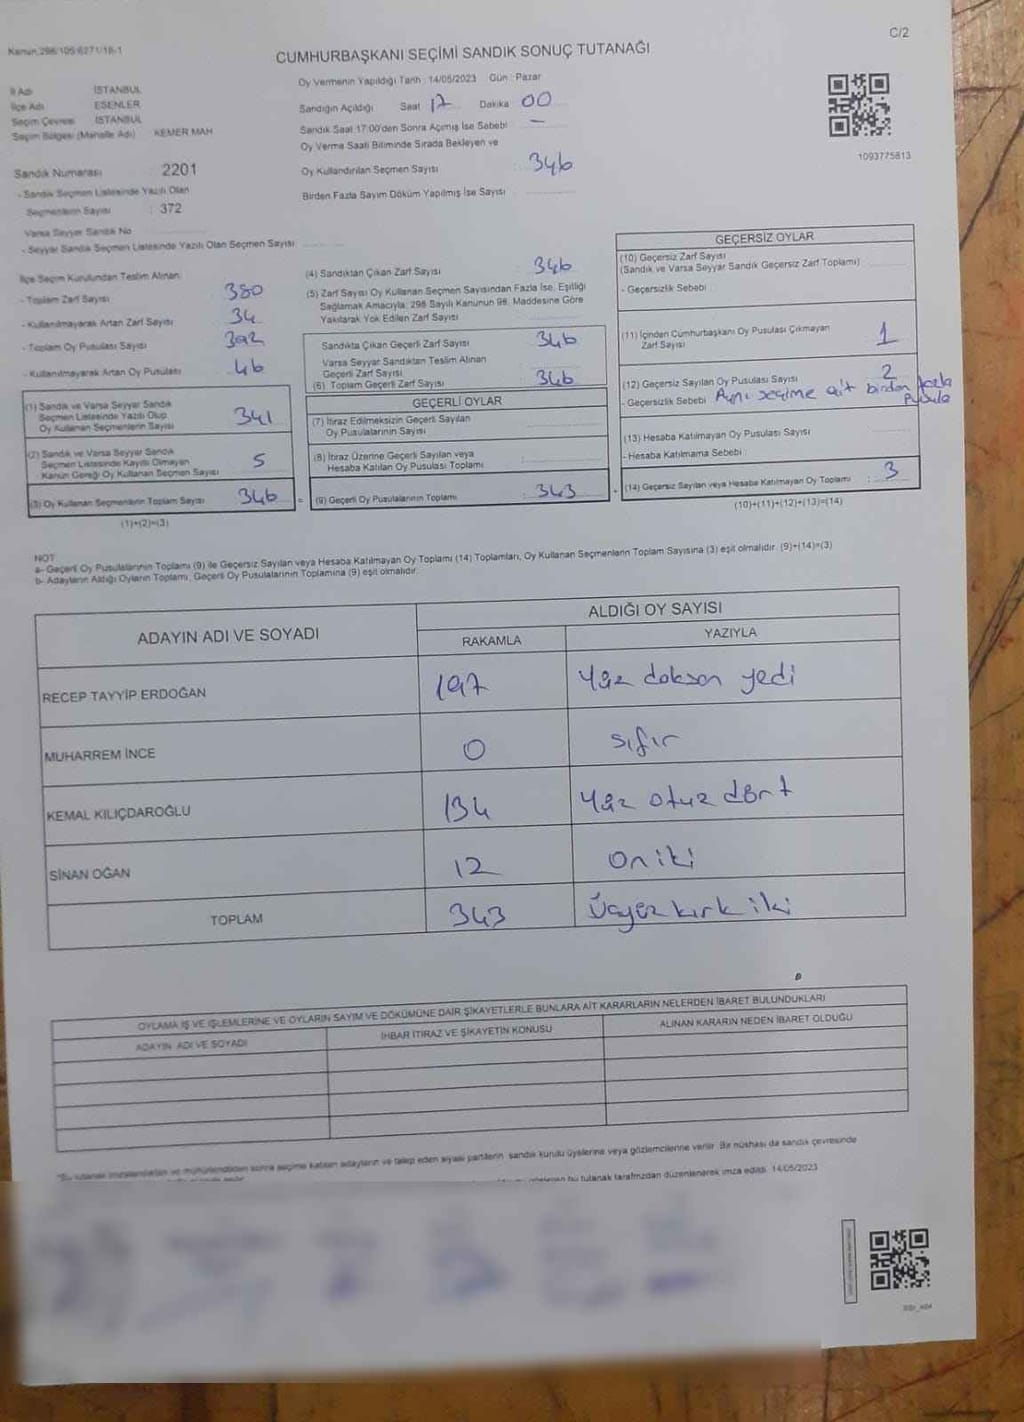 Kanun:298/105 6271/18-1
C/2
CUMHURBAŞKANI SEÇİMİ SANDIK SONUÇ TUTANAĞI
Oy Vermenin Yapıldığı Tarih : 14/05/2023 Gün : Pazar
İl Adı İSTANBUL
İlçe Adı ESENLER
Seçim Çevresi İSTANBUL
Seçim Bölgesi (Mahalle Adı) KEMER MAH
Sandık Numarası 2201
- Sandık Seçmen Listesinde Yazılı Olan
Seçmenlerin Sayısı : 372
Varsa Seyyar Sandık No
- Seyyar Sandık Seçmen Listesinde Yazılı Olan Seçmen Sayısı
Sandığın Açıldığı Saat 17 Dakika 00
Sandık Saat 17:00'den Sonra Açımış İse Sebebi : -
Oy Verme Saati Bitiminde Sırada Bekleyen ve
Oy Kullandırılan Seçmen Sayısı : 346
Birden Fazla Sayım Döküm Yapılmış İse Sayısı
1093775813
İlçe Seçim Kurulundan Teslim Alınan
- Toplam Zarf Sayısı 380
- Kullanılmayarak Artan Zarf Sayısı 34
- Toplam Oy Pusulası Sayısı 392
- Kullanılmayarak Artan Oy Pusulası 46
(1) Sandık ve Varsa Seyyar Sandık
Seçmen Listesinde Yazılı Olup
Oy Kullanan Seçmenlerin Sayısı 341
(2) Sandık ve Varsa Seyyar Sandık
Seçmen Listesinde Kayıtlı Olmayan
- Kanun Gereği Oy Kullanan Seçmen Sayısı 5
(3) Oy Kullanan Seçmenlerin Toplam Sayısı 346 =
(1)+(2)=(3)
(4) Sandıktan Çıkan Zarf Sayısı 346
(5) Zarf Sayısı Oy Kullanan Seçmen Sayısından Fazla İse, Eşitliği
Sağlamak Amacıyla, 298 Sayılı Kanunun 98. Maddesine Göre
Yakılarak Yok Edilen Zarf Sayısı
Sandıkta Çıkan Geçerli Zarf Sayısı 346
Varsa Seyyar Sandıktan Teslim Alınan
Geçerli Zarf Sayısı
(6) Toplam Geçerli Zarf Sayısı 346
GEÇERLİ OYLAR
(7) İtiraz Edilmeksizin Geçerli Sayılan
Oy Pusulalarının Sayısı
(8) İtiraz Üzerine Geçerli Sayılan veya
Hesaba Katılan Oy Pusulası Toplamı
(9) Geçerli Oy Pusulalarının Toplamı : 343 +
GEÇERSİZ OYLAR
(10) Geçersiz Zarf Sayısı
(Sandık ve Varsa Seyyar Sandık Geçersiz Zarf Toplamı)
- Geçersizlik Sebebi :
(11) İçinden Cumhurbaşkanı Oy Pusulası Çıkmayan
Zarf Sayısı 1
(12) Geçersiz Sayılan Oy Pusulası Sayısı 2
- Geçersizlik Sebebi : Aynı seçime ait birden fazla
pusula
(13) Hesaba Katılmayan Oy Pusulası Sayısı
- Hesaba Katılmama Sebebi :
(14) Geçersiz Sayılan veya Hesaba Katılmayan Oy Toplamı : 3
(10)+(11)+(12)+(13)=(14)
NOT
a- Geçerli Oy Pusulalarının Toplamı (9) ile Geçersiz Sayılan veya Hesaba Katılmayan Oy Toplamı (14) Toplamları, Oy Kullanan Seçmenlerin Toplam Sayısına (3) eşit olmalıdır. (9)+(14)=(3)
b- Adayların Aldığı Oyların Toplamı, Geçerli Oy Pusulalarının Toplamına (9) eşit olmalıdır.
ADAYIN ADI VE SOYADI ALDIĞI OY SAYISI
RAKAMLA YAZIYLA
RECEP TAYYİP ERDOĞAN 197 Yüz doksan yedi
MUHARREM İNCE 0 sıfır
KEMAL KILIÇDAROĞLU 134 Yüz otuz dört
SİNAN OĞAN 12 on iki
TOPLAM 343 Üçyüz kırk iki
OYLAMA İŞ VE İŞLEMLERİNE VE OYLARIN SAYIM VE DÖKÜMÜNE DAİR ŞİKAYETLERLE BUNLARA AİT KARARLARIN NELERDEN İBARET BULUNDUKLARI
ADAYIN ADI VE SOYADI İHBAR İTİRAZ VE ŞİKAYETİN KONUSU ALINAN KARARIN NEDEN İBARET OLDUĞU
*Bu tutanak imzalandıktan ve mühürlendikten sonra seçime katılan adayların ve talep eden siyasi partilerin sandık kurulu üyelerine veya gözlemcilerine verilir. Bir nüshası da sandık çevresinde
bu tutanak tarafımızdan düzenlenerek imza edildi. 14/05/2023